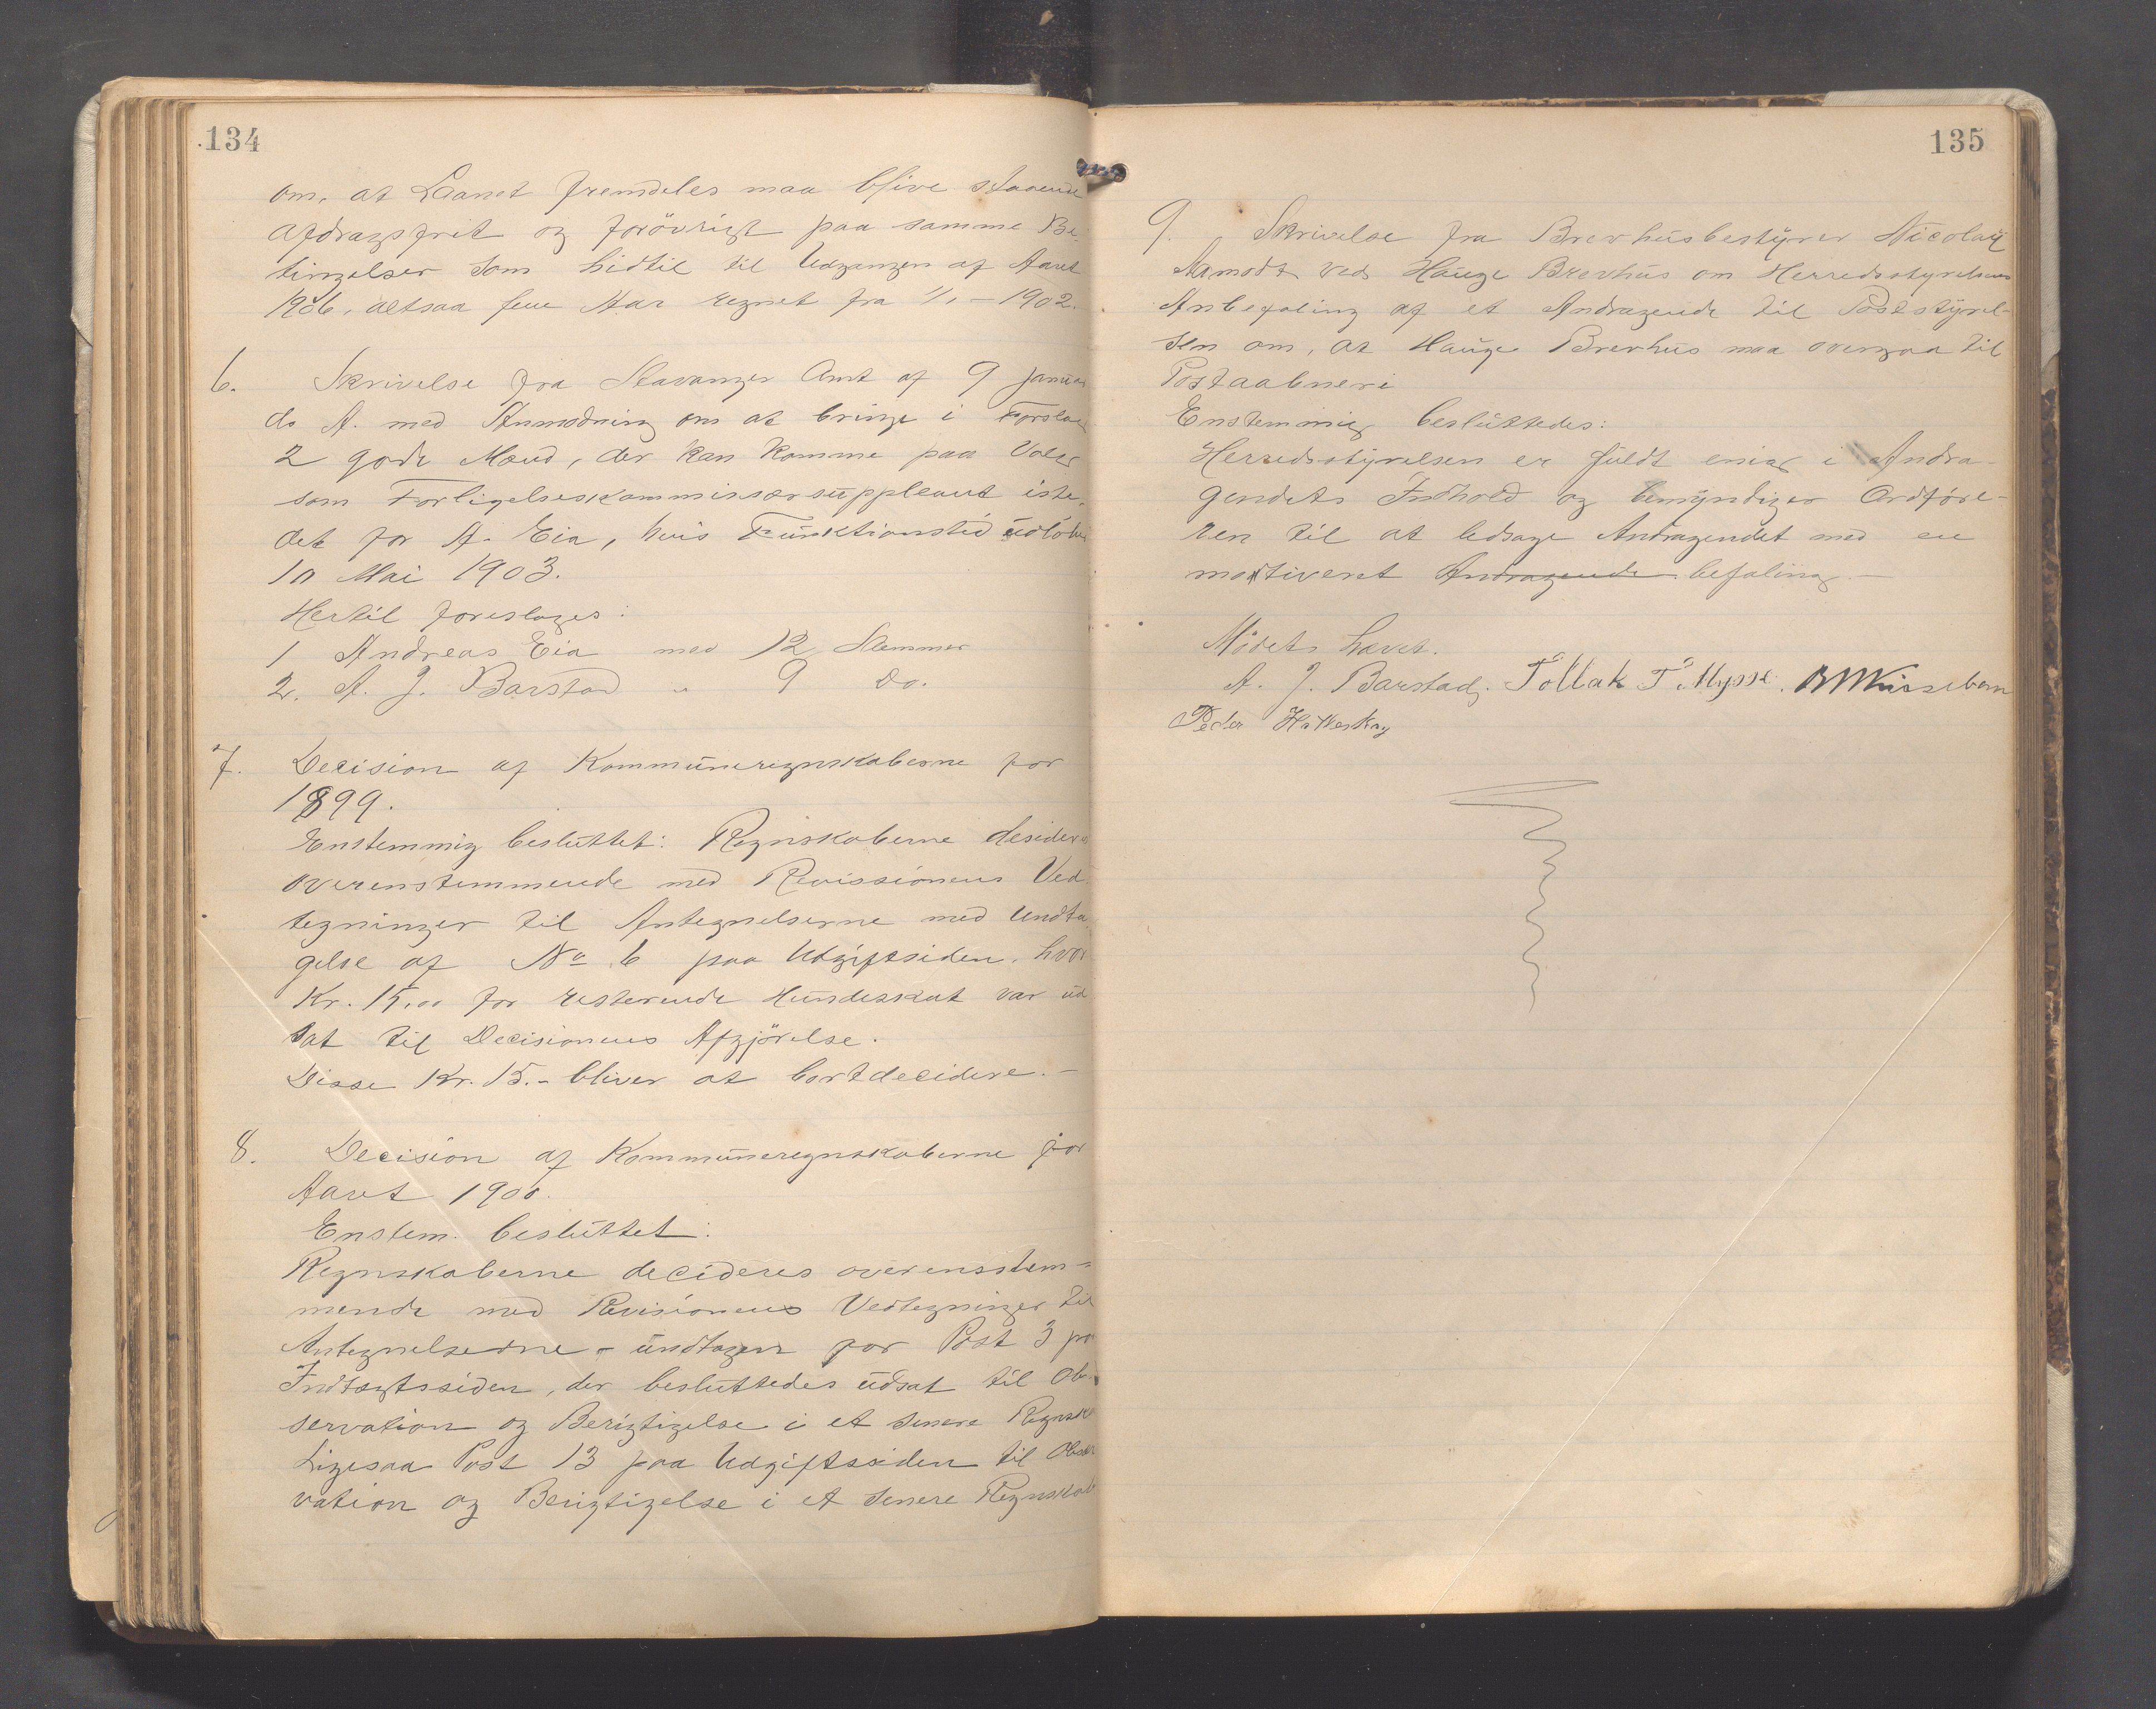 134
om, at Laanet fremdeles maa blive staaende
afdragsfrit og forövrigt paa samme Be-
tingelser som hidtil til Udgangen af Aaret
1906, altsaa fem Aar regnet fra 1/1 - 1902.
6. Skrivelse fra Stavanger Amt af 9 Januar
ds A. med Anmodning om at bringe i Forslag
2 gode Mænd, der kan komme paa Valg
som Forligelseskommissærsuppleant iste-
det for A. Eia, hvis Funktionstid udlöber
10 Mai 1903.
Hertil foreslages:
1 Andreas Eia med 12 Stemmer
2. A. J. Barstad " 9 Do.
7. Decision af Kommuneregnskaberne for
1899.
Enstemmig besluttet: Regnskaberne desideres
overenstemmende med Revissionens Ved-
tegninger til Antegnelserne med Undta-
gelse af No 6 paa Udgiftsiden, hvor
Kr. 15,00 for resterende Hundeskat var ud
sat til Decisionens Afgjörelse.
Disse Kr. 15.- bliver at bortdecidere. -
8. Decision af Kommuneregnskaberne for
Aaret 1900.
Enstem. besluttet:
Regnskaberne decideres overensstem-
mende med Revisionens Vedtegninger til
Antegnelserne - undtagen for Post 3 paa
Indtægtssiden, der besluttedes udsat til Ob-
servation og Berigtigelse i et senere Regnsk
Ligesaa Post 13 paa Udgiftssiden til Obser
vation og Berigtigelse i et senere Regnskab
135
9. Skrivelse fra Brevhusbestyrer Nicolay
Aamodt ved Hauge Brevhus om Herredsstyrelsens
Anbefaling af et Andragende til Poststyrel-
sen om, at Hauge Brevhus maa overgaa til
Postaabneri
Enstemmig besluttedes:
Herredsstyrelsen er fuldt enig i Andra-
gendets Indhold og bemyndiger Ordföre-
ren til at ledsage Andragendet med en
motiveret Andragende befaling. -
Mödet hævet.
A. J. Barstad. Tollak T. Mysse.
Peder Hatleskog